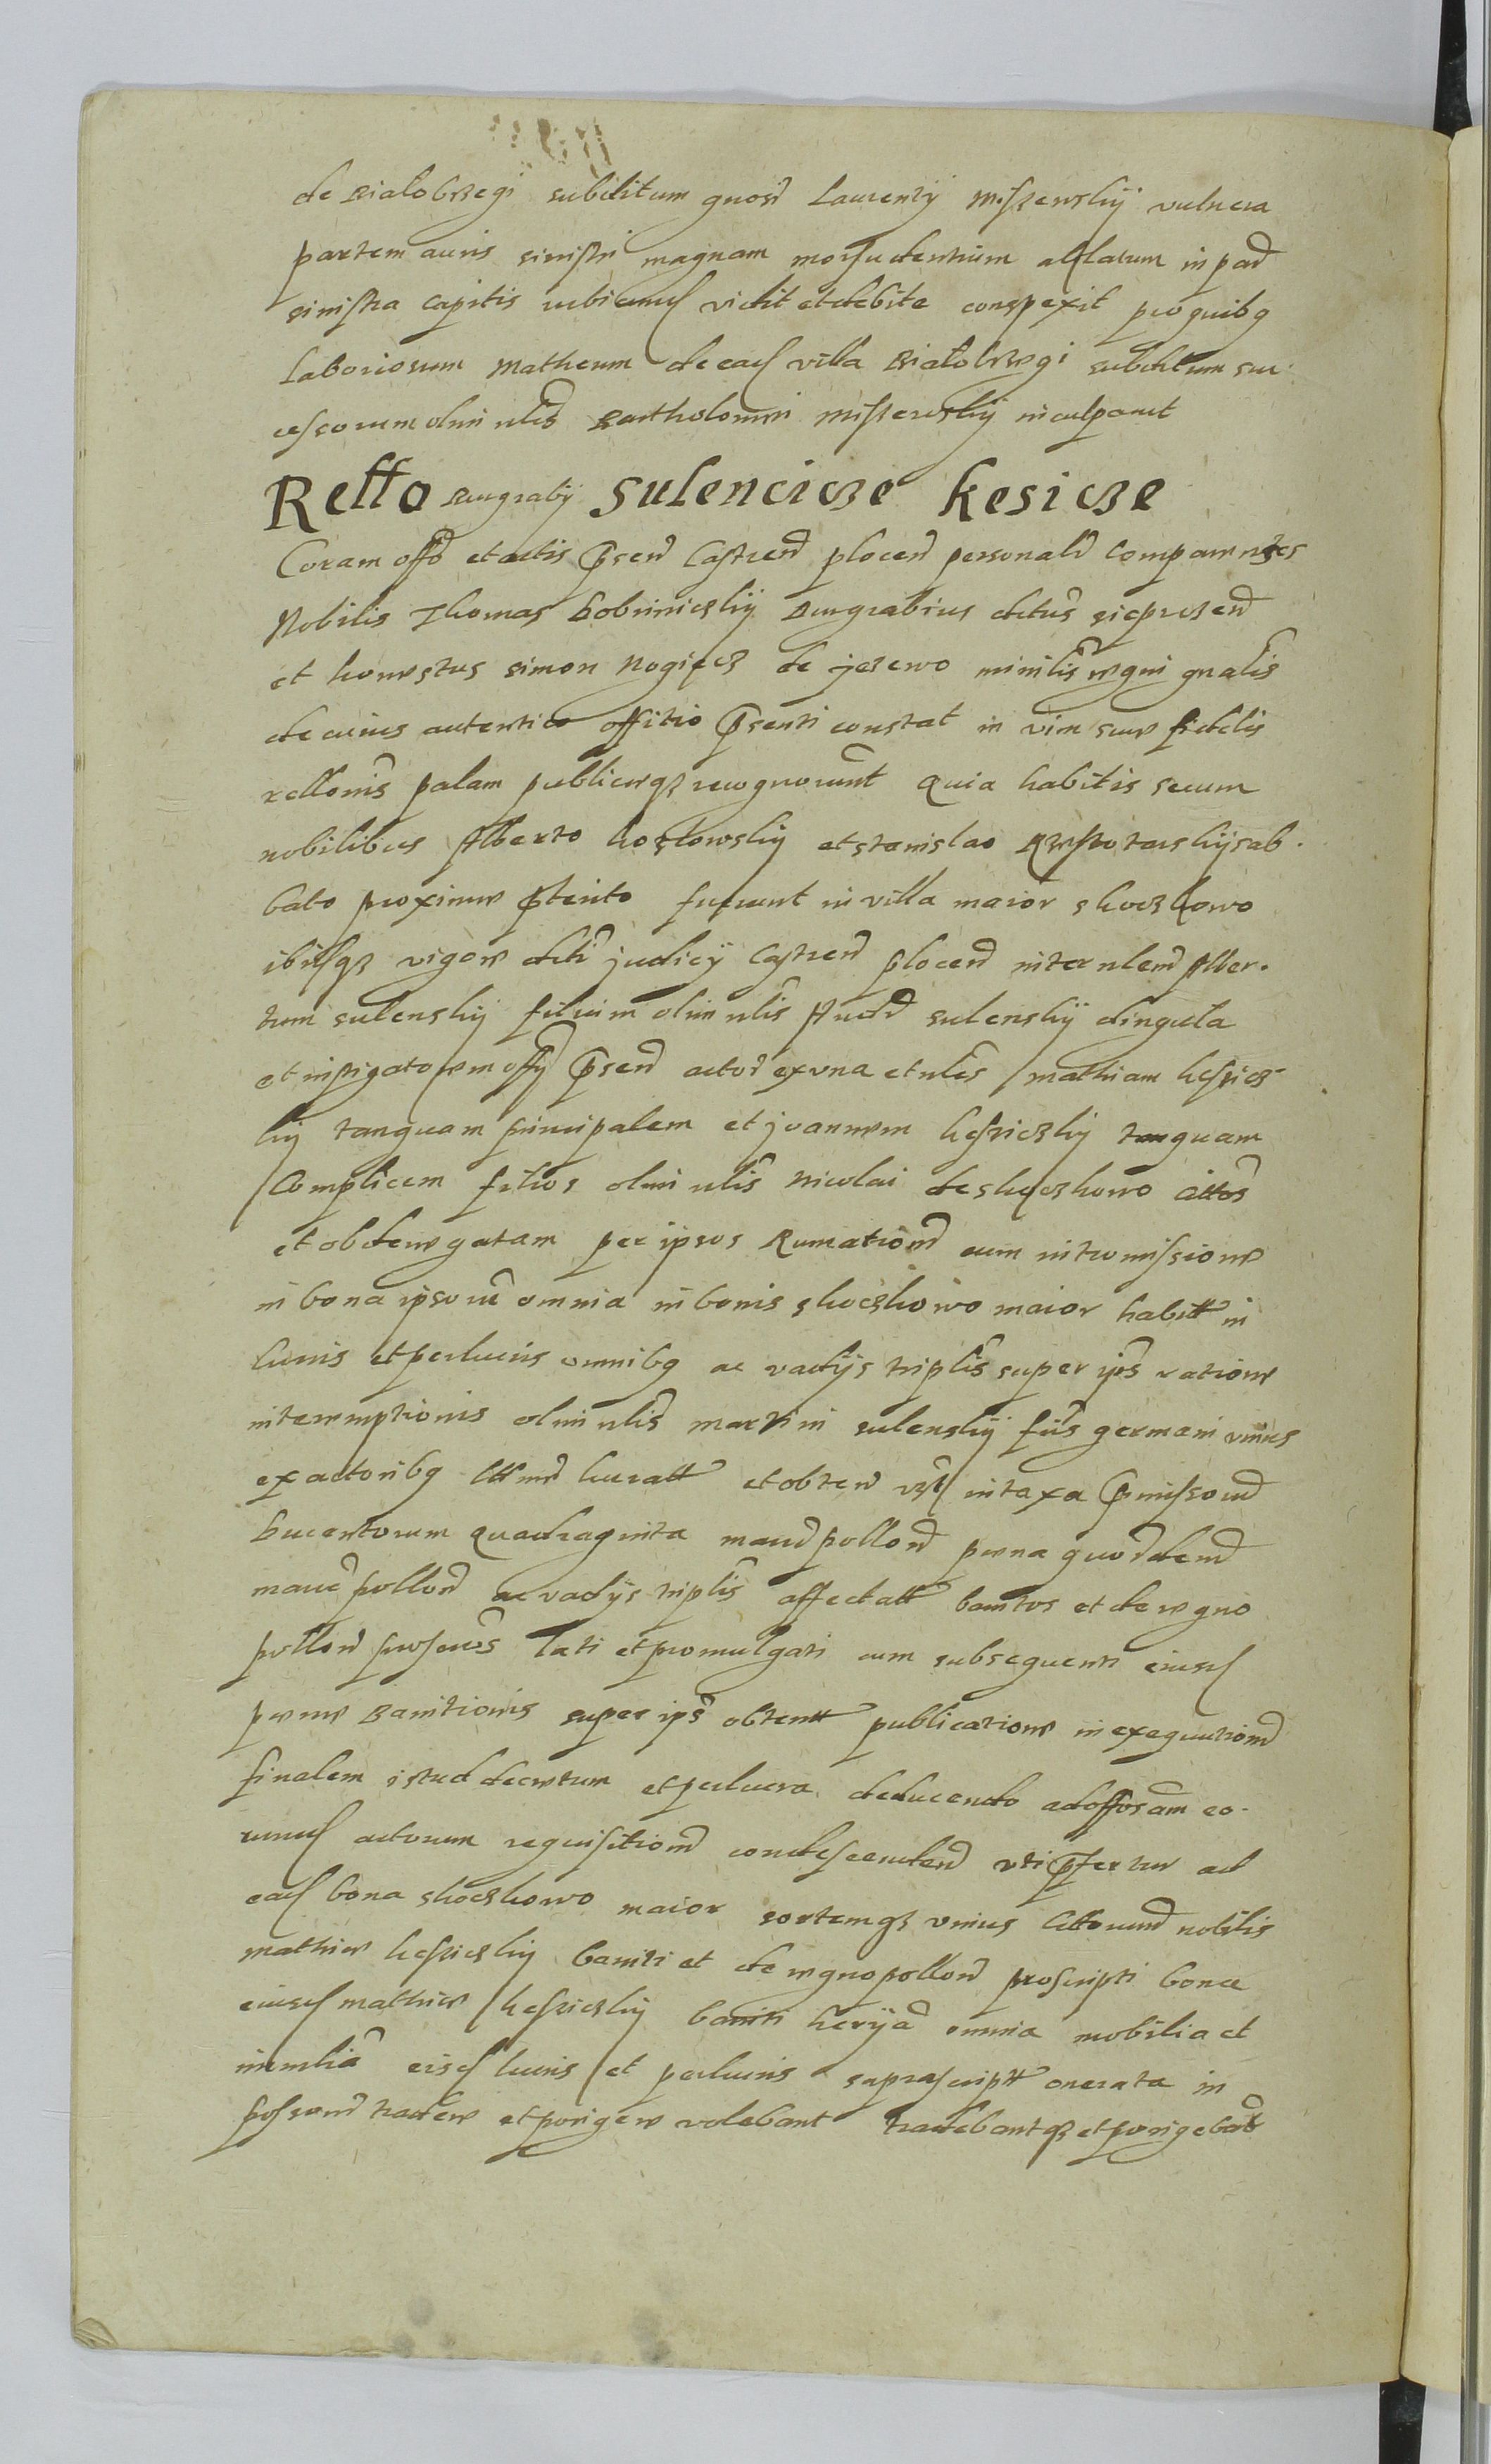 de Białobrzegi subditum gnosi Laurentÿ Miszewskÿ vulnera
partem auris sinistri magnam morsu dentium ablatum in pad
sinistra capitis rubicund vidit et debite conspexit pro quibq
Laboriosum Matheum de ead villa Białobrzegi subditum suc
cessorum olim nlis Bartholomei Miszewskÿ inculpavit
Rello Burgrabÿ Sulencicze Kesicze
Coram offo et actis Prsend Castren plocen personalr Comparentes
Nobilis Thomas Dobrinieczkÿ Burgrabius dictus sicprzend
et honestus Simon Nogiecz de Jezewo minilis regni gnalis
de cuius autentico offitio Prsenti constat in vim sue fidelis
rellonis palam publiceqz recognoverunt Quia habitis secum
nobilibus Alberto Kozłowskÿ et Stanislao sab
bato proxime Pterito fuerunt in villa maior Skoczkowo
ibidqz vigore dicti judicÿ Castren plocen inter nlem Alber
tum Sulenskÿ filium olim nlis Andr Sulenskÿ dingula
et instigatorem offÿ Prsen actor ex una et nles Mathiam Kesicz
kÿ tanquam principalem et Joannem Kesiczkÿ tanquam
Complicem filios olim nlis Nicolai de Skoczkowo cittos
et ob denegatam per ipsos Rumationem cum intromissione
in bona ipsorum omnia in bonis Skoczkowo maior habitt in
lucris et perlucris omnibq ac vadÿs triplis super ips ratione
interemptionis olim nlis Martini Sulenskÿ fris germani unius
ex actoribq lttme lucratt et obten vz in taxa Prmissorum
Ducentorum quadraginta marcr pollon pena quordem
marcr pollon ac vadÿs triplis affectatt banitos et de regno
pollon proscros lati et promulgati cum subsequenti eiusd
pene Banitionis super ips obtentt publicatione in exequutionem
finalem istud decretum et perlucra deducendo ad offosam eo
rund actorum requisitionem condescenden uti Prfertur ad
ead bona Skoczkowo maior sortemqz unius cittorum nobilis
Mathie Kesiczkÿ baniti et de regno pollon proscripti bona
eiusd Mathie Kesiczkÿ baniti omnia mobilia et
immlia eisd lucris et perlucris suprascriptt onerata in
possem tradere et porigere volebant tradebantqz et porigebat